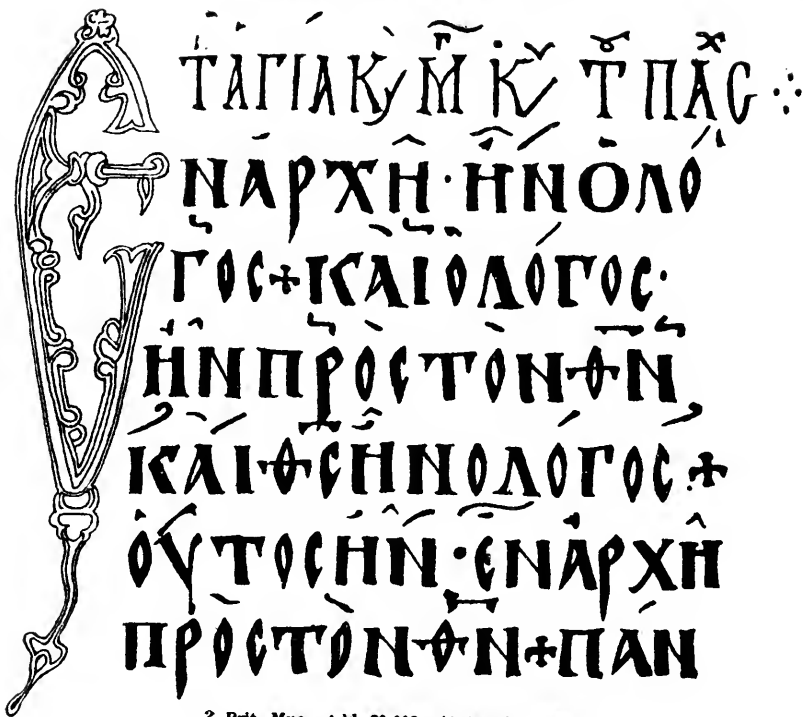 ΤΑΓΙΑΚΥ Μ̅ Κ Τ ΠΑ̇C ⁘
ΕΝΆΡΧΗ̂·ΗΝὉΛΌ
ΓΟC+ΚΑῚΟΛΌΓΟC·
ἩΝΠΡῸCΤῸΝΘ̅Ν̅
ΚΑῚΘ̅C̅ΗΝΟΛΌΓΟC+
ὉΥΤΟCΗΝ·ἘΝἈΡΧΗ̂
ΠΡῸCΤῸΝΘ̅Ν̅+ΠΆΝ